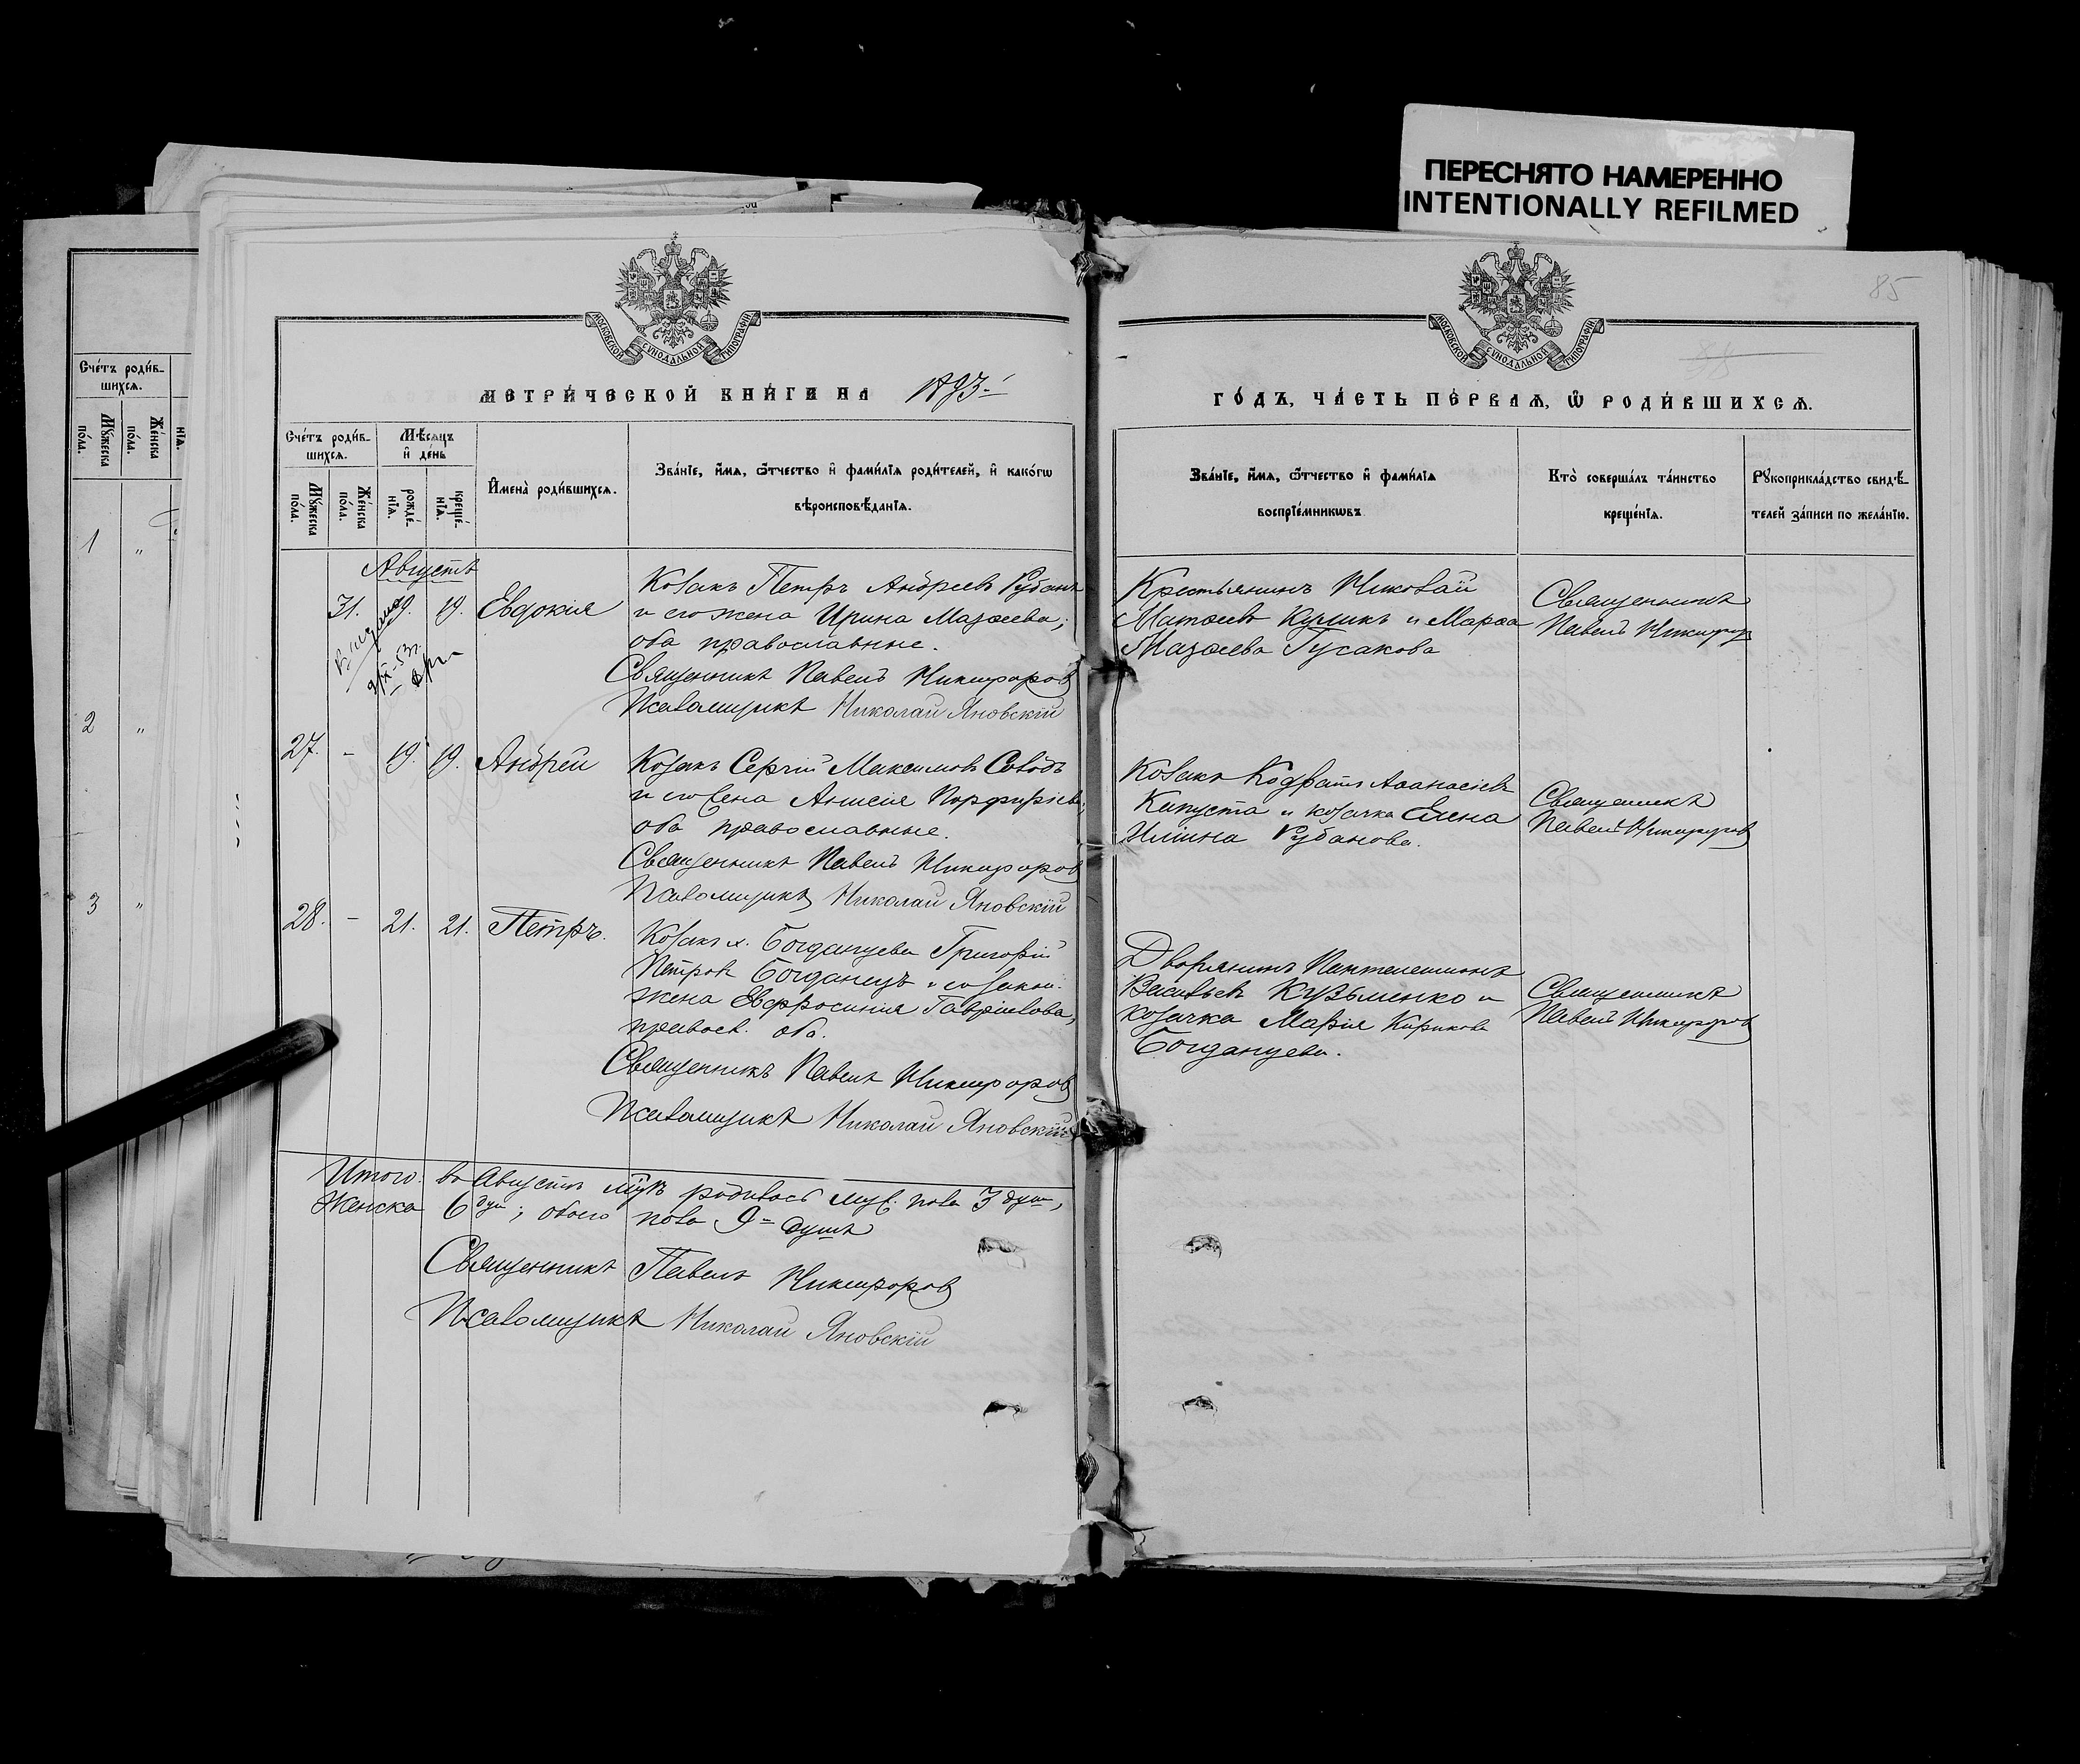 ПЕРЕСНЯТО НАМЕРЕННО
INTENTIONALLY REFILMED
85
МОСКОВСКОЙ СУНОДАЛЬНОЙ ТИПОГРАФІИ
МОСКОВСКОЙ СУНОДАЛЬНОЙ ТИПОГРАФІИ
МЕТРИ́ЧЕСКОЙ КНИ́ГИ НА 1893
ГО́ДЪ, ЧА́СТЬ ПЕ́РВАЯ, Ѽ РОДИ́ВШИХСЯ.
Сче́тъ роди́в-
шихся.
Му́жеска по́ла.
Же́нска по́ла.
нїя.
1 "
2 "
3 "
Сче́тъ роди́в-
шихся.
Му́жеска по́ла.
Же́нска по́ла.
Мѣ́сяцъ
и҆ де́нь
рожде́-
нїя.
креще́-
нїя.
И҆мена̀ роди́вшихся.
Зва́нїе, и҆́мя, ѻ҆́тчество и҆ фами́лїя роди́телей, и҆ како́гѡ
вѣроисповѣ́данїя.
Зва́нїе, и҆́мя, ѻ҆́тчество и҆ фами́лїя
воспрїе́мникѡвъ
Кто̀ соверша́лъ та́инство
креще́нїя.
Рꙋкоприкла́дство свидѣ́-
телей за́писи по жела́нїю.
Августъ
31. 19. 19. Евдокія
Козакъ Петръ Андреевъ Рубанъ
и его жена Ирина Мазоева;
оба православные.
Священникъ Павелъ Никифоровъ
Псаломщикъ Николай Яновскій
Крестьянинъ Николай
Матѳеевъ Куликъ и Марѳа
Гусакова
Священникъ
Павелъ Никифоровъ
27. - 19. 19. Андрей
Козакъ Сергій Максимовъ
и его жена Анисія Порфиріева;
оба православные.
Священникъ Павелъ Никифоровъ
Псаломщикъ Николай Яновскій
Козакъ Кодратъ Аѳанасіевъ
Капуста и козачка Елена
Иліина Рубанова.
Священникъ
Павелъ Никифоровъ
28. - 21. 21. Петръ.
Козакъ х. Богданцева Григорій
Петровъ Богданецъ и его закон.
жена Евфросинія Гавріилова,
правосл. оба.
Священникъ Павелъ Никифоровъ
Псаломщикъ Николай Яновскій
Дворянинъ Пантелеимонъ
Васильевъ Кузьменко и
козачка Марія Кирикова
Богданцева.
Священникъ
Павелъ Никифоровъ
Итого въ Августѣ м-цѣ родилось муж. пола 3 душ,
женска 6 душ; обоего пола 9 душъ
Священникъ Павелъ Никифоровъ
Псаломщикъ Николай Яновскій